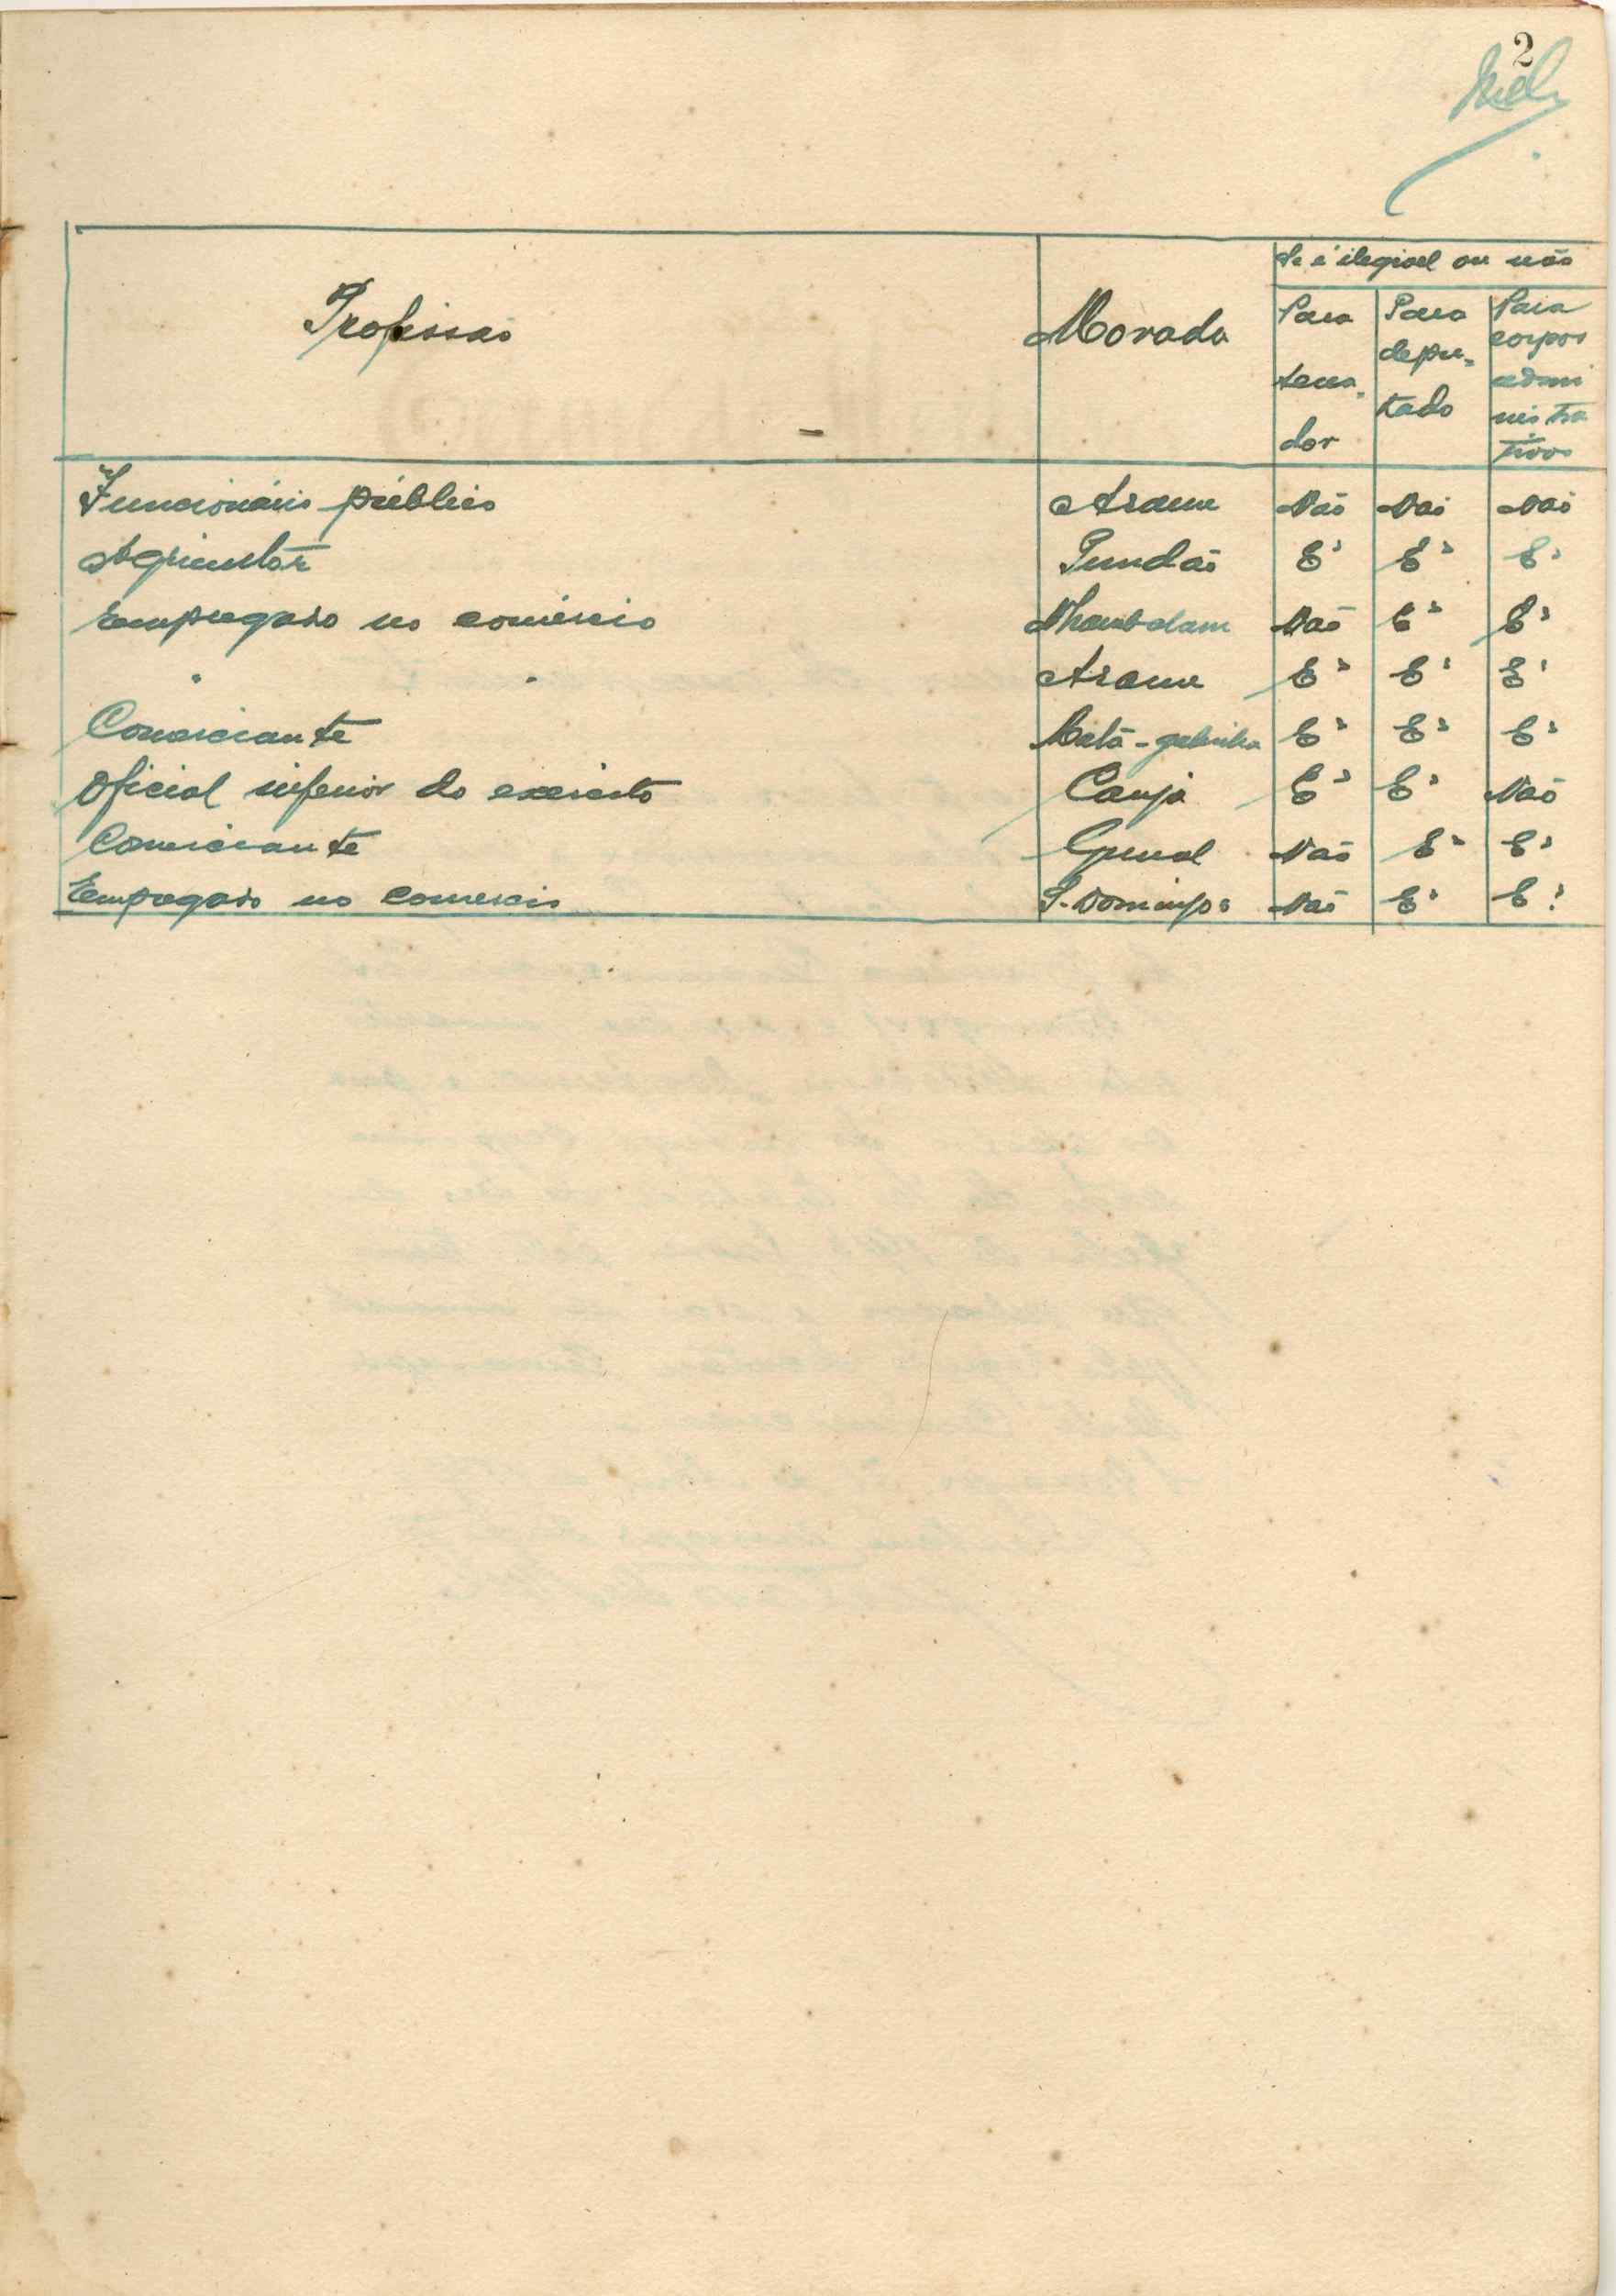 2
Profissão Morada Se é ilegivel ou não
Para sena-dor Para depu-tado Para corpos admi nistra tivos
Funcionário público Arame Não Não Não
Agricultor Pundão É É É
Empregado no comércio Nhambolam Não É É
" " Arame É É É
Comerciante Matá-galinha É É É
Oficial inferior do exército Canja É É Não
Comerciante Não É É
Empregado no comercio S. Domingos Não É É